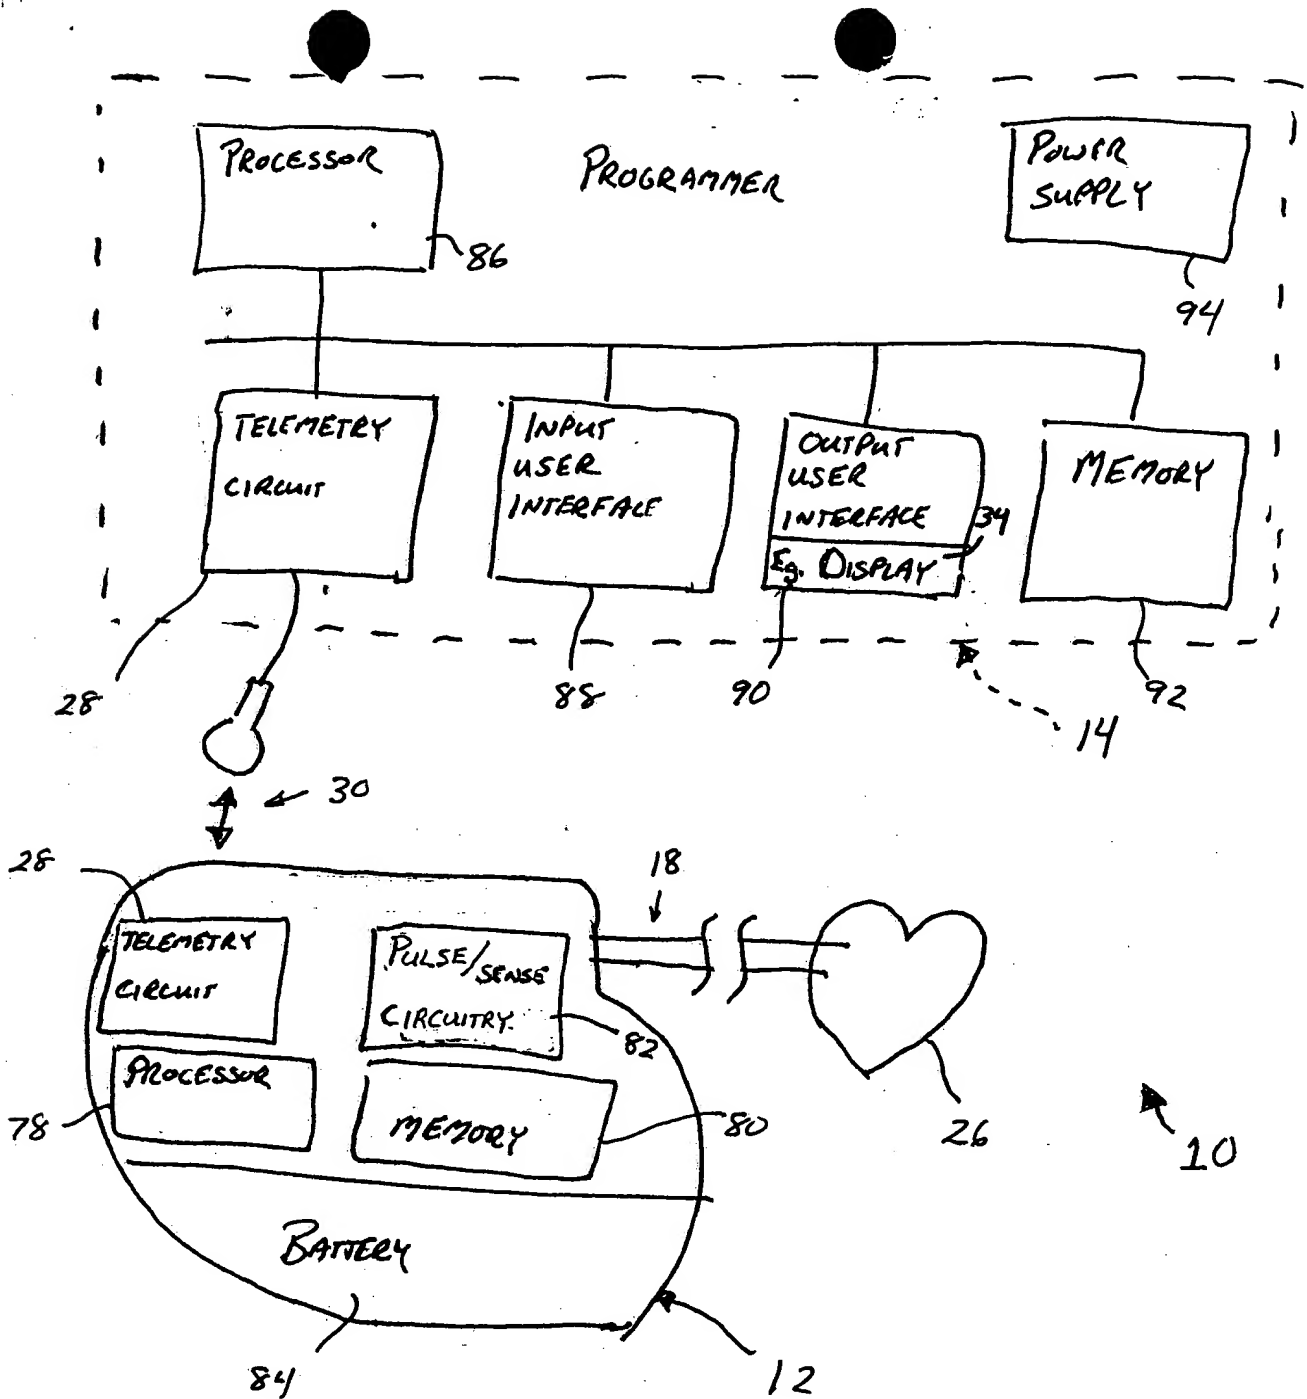 PROCESSOR
86
PROGRAMMER
POWER
SUPPLY
94
TELEMETRY
CIRCUIT
28
INPUT
USER
INTERFACE
88
OUTPUT
USER
INTERFACE
34
Eg. DISPLAY
90
MEMORY
92
14
30
28
TELEMETRY
CIRCUIT
PULSE/SENSE
CIRCUITRY
82
18
26
10
PROCESSOR
78
MEMORY
80
BATTERY
84
12